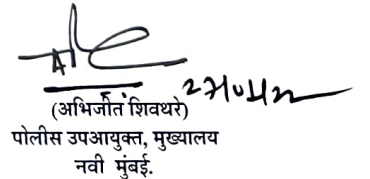 (अभिजीत शिवथरे)
पोलीस उपआयुक्त, मुख्यालय
नवी मुंबई.